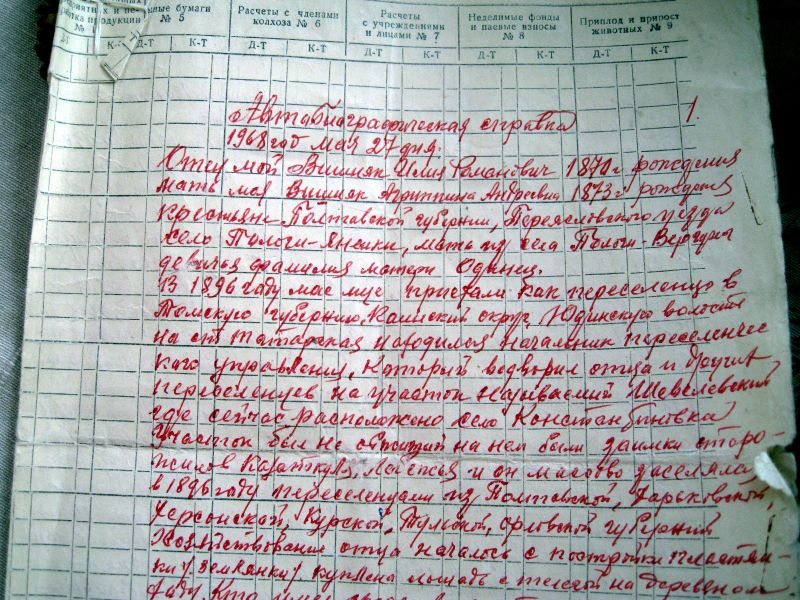 ные бумаги № 5
Расчеты с членами колхоза № 6
Расчеты с учреждениями и лицами № 7
Неделимые фонды и паевые взносы № 8
Приплод и прирост животных № 9
К-Т Д-Т К-Т Д-Т К-Т Д-Т К-Т Д-Т К-Т Д-Т К-Т
1.
Автобиографическая справка
1968 год мая 27 дня.
Отец мой Вишняк Илия Романович 1870 г рождения
мать моя Вишняк Агриппина Андреевна 1873 г рождения
крестьяне Полтавской губернии, Переясловского уезда
село Пологи-Яненки, мать из села Пологи-Вергуны
девичья фамилия матери Одинец.
В 1896 году мае м-це приехали как переселенцы в
Томскую губернию, Каинский округ, Юдинскую волость
на ст Татарская находился начальник переселенчес
кого управления, который водворил отца и других
переселенцев на участок называемий Шевелевский
где сейчас расположено село Константиновка
Участок был не обжитий на нем были заимки старо-
жилов Казаткуль, и он масово заселялся
в 1896 году переселенцами из Полтавской, Харьковской,
Херсонской, Курской, Тульской, Орловской губерний
Хозяйствование отца началось с постройки пластян-
ки /землянки/ куплена лошадь с телегой на деревеном